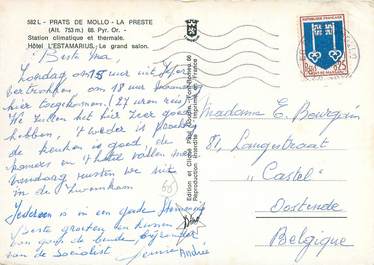 582 L - PRATS DE MOLLO - LA PRESTE
(Alt. 753 m.) 66. Pyr. Or. -
Station climatique et thermale.
Hôtel L'ESTAMARIUS - Le grand salon.
Beste Ina,
Zondag om 15 uur uit
vertrokken om 18 uur
hier (27 uren reis)
We zullen het hier zeer goed
hebben, 't weder is prachtig
de keuken is goed de
kamers en 't hotel vallen mee
Vandaag rusten we uit
in de
Iedereen is in een goede stemming
Beste groeten en kussen
van gans de bende, bijzonder
van de Socialist
André
REPUBLIQUE FRANÇAISE
0.25
MONT-DE-MARSAN
Reproduction interdite
Madame E. Bourgoin
81, Langestraat
"Castel"
Oostende
Belgique